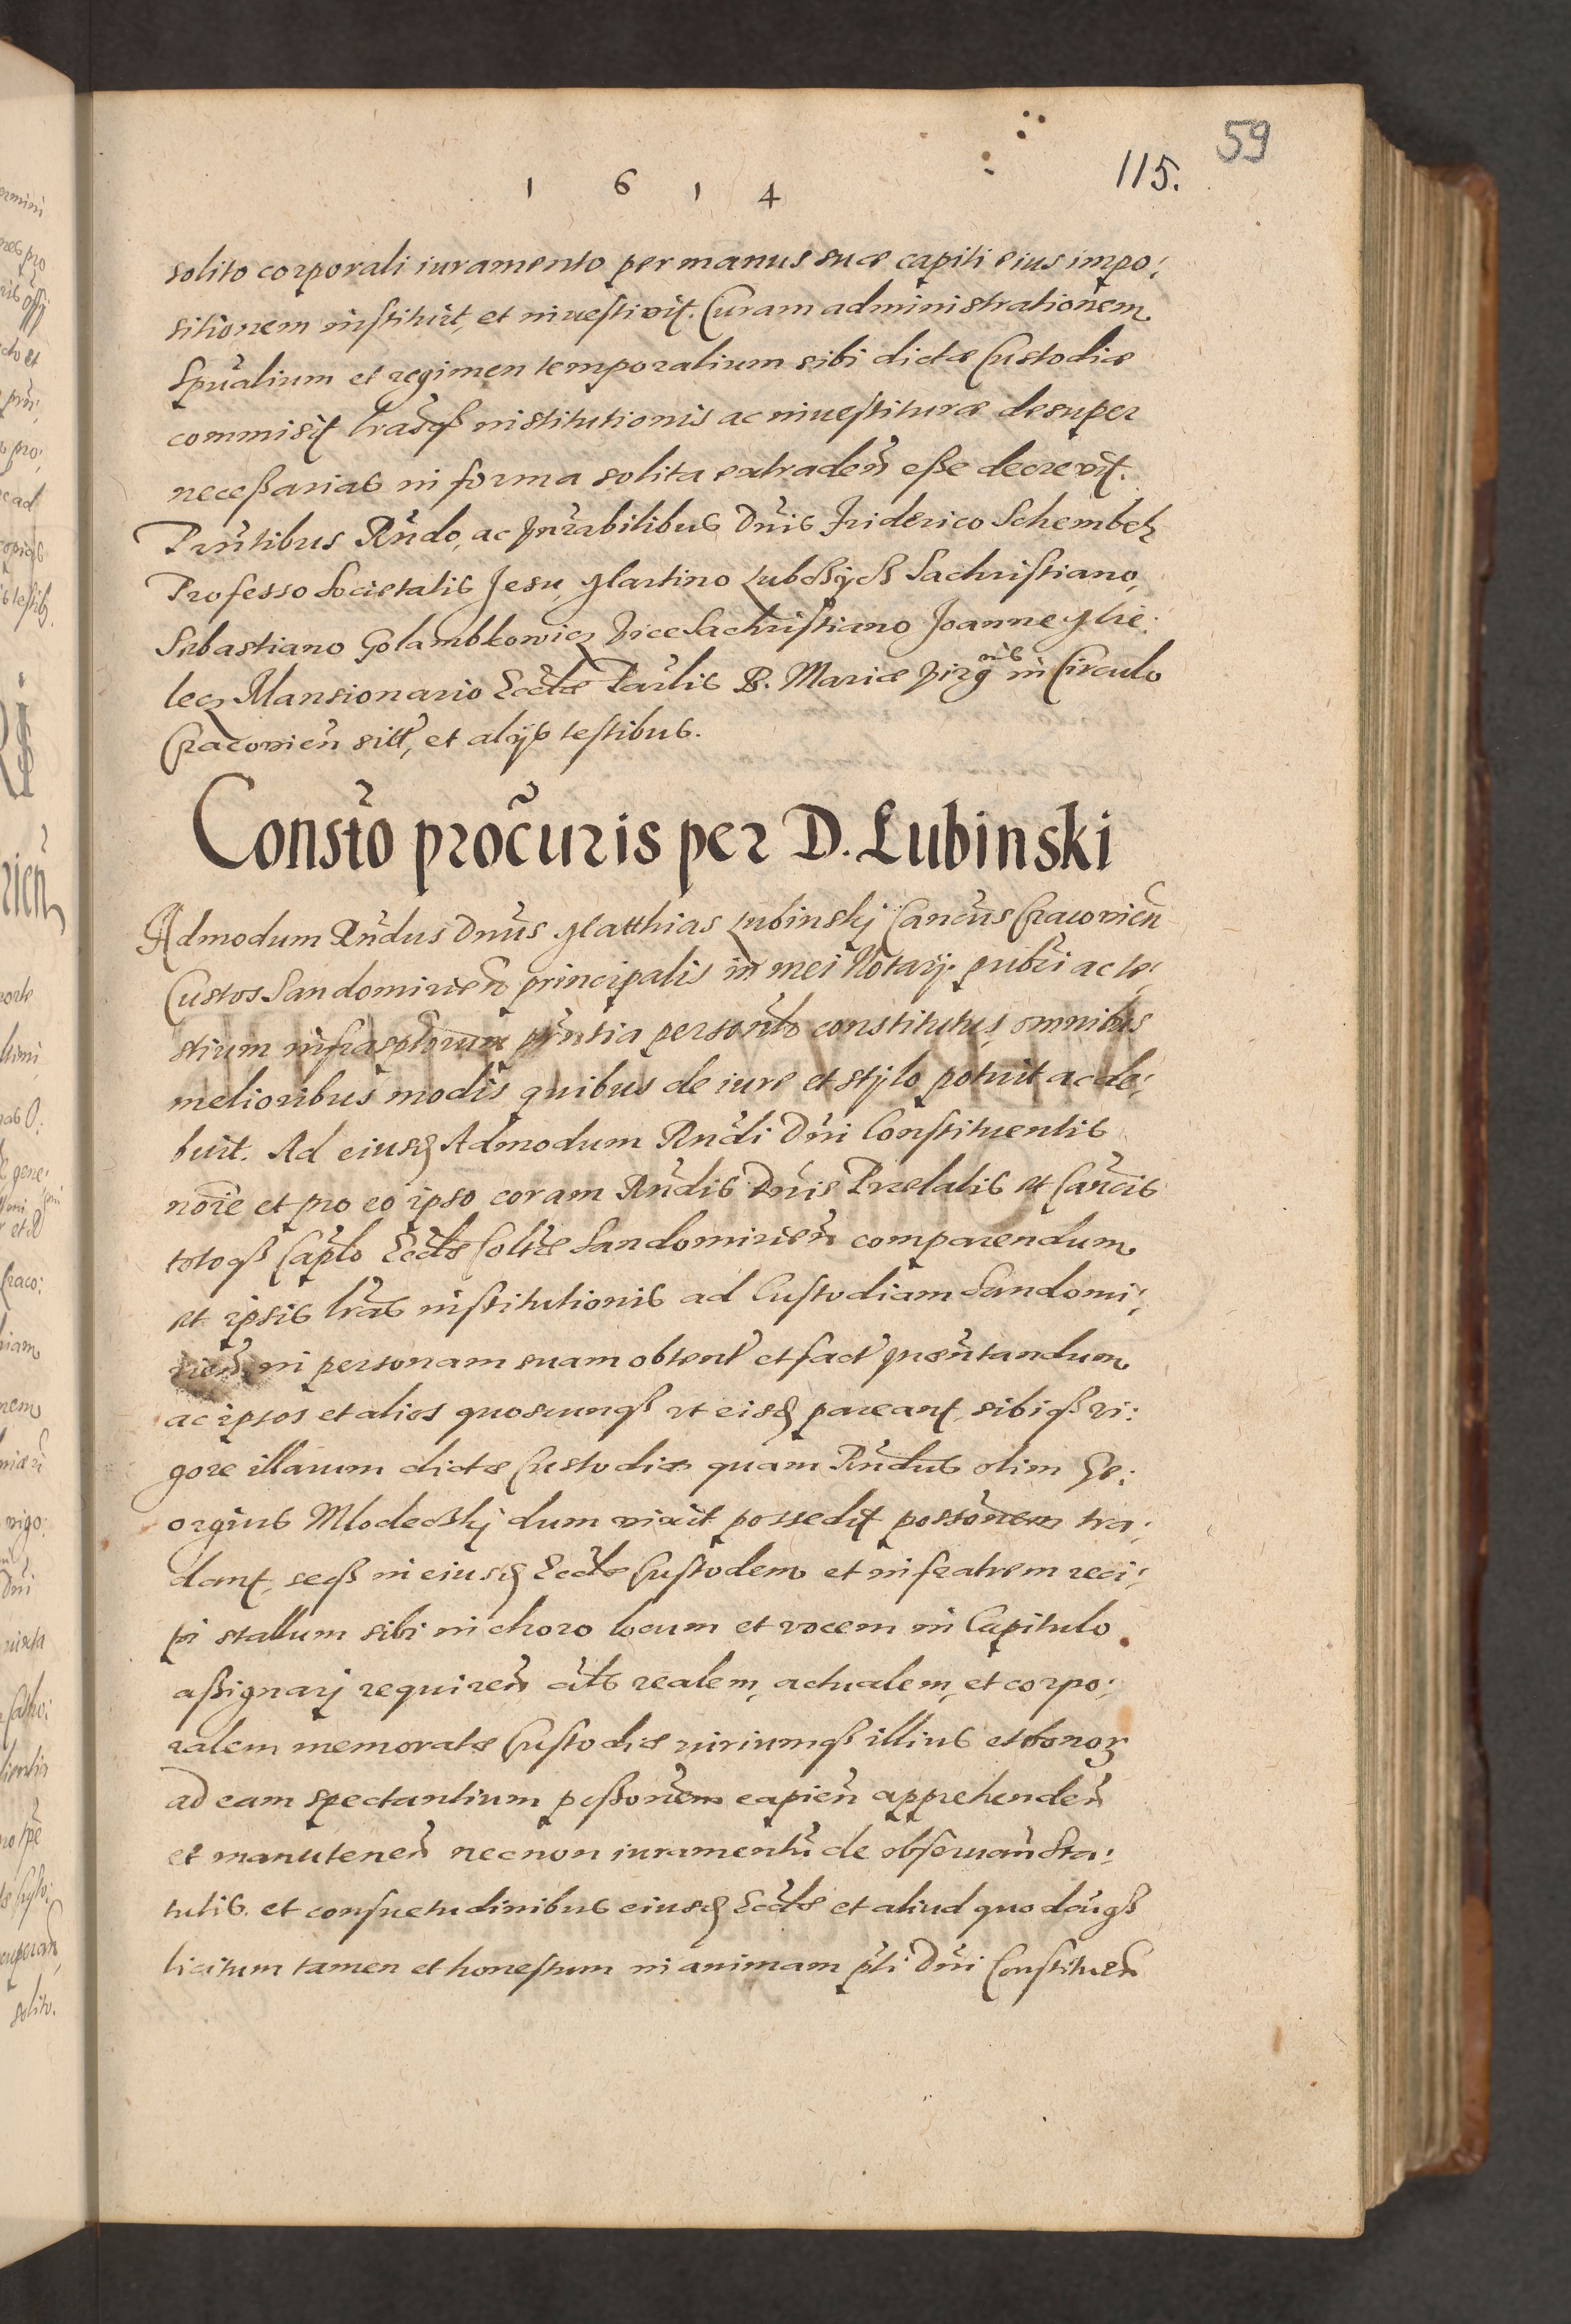 59
115.
1 6 1 4
solito corporali iuramento per manus suæ capiti eius impo:
sitionem instituit, et investivit. Curam administrationem
Spũalium et regimen temporalium sibi dictæ Custodiæ
commisit lrasq institutionis ac investituræ desuper
necessarias in forma solita extraden̄ esse decrevit.
Pñtibus Rñdo, ac Vnrabilibus Dñis Friderico Schembek
Professo Societatis Jesu, Martino Sachristiano,
Sebastiano Golambkowicz ViceSachristiano Joanne Mie:
lecz Mansionario Eccłæ Parlis B. Mariæ Virgnis in Circulo
Cracovien̄ sitt, et alijs testibus.
Constõ procuris per D. Lubinski
Admodum Rñdus Dñus Matthias Lubinskj Canc̃us Cracovien̄
Custos Sandomirien̄ principalis in mei Notarij publi ac te:
stium infrascptorum pñtia personlr constitutus, omnibus
melioribus modis quibus de iure et stylo potuit ac de:
buit. Ad eiusd Admodum Rñdi Dñi Constituentis
noie et pro eo ipso coram Rñdis Dñis Prælatis et Cancis
totoq Caplo Eccłæ Coltæ Sandomirien̄ comparendum
et ipsis lras institutionis ad Custodiam Sandomi:
rien̄ in personam suam obtent et fact præsñtandum
ac ipsos et alios quoscunq ut eisd pareant, sibiq vi:
gore illarum dictæ Custodiæ quam Rñdus olim Ge:
orgius Mlodeckj dum vixit possedit possonem tra:
dant, seq in eiusd Eccłæ Custodem et in fratrem reci:
pi stallum sibi in choro locum et vocem in Capitulo
assignarj requiren̄ realem, actualem, et corpo:
ralem memoratæ Custodiæ iuriumq illius et bonor
ad eam spectantium possonem capien̄ apprehenden̄
et manutenen̄ necnon iuramentũ de observan̄ Sta:
tutis et consuetudinibus eiusd Eccłæ et aliud quodcũq
licitum tamen et honestum in animam pti Dñi Constituen̄